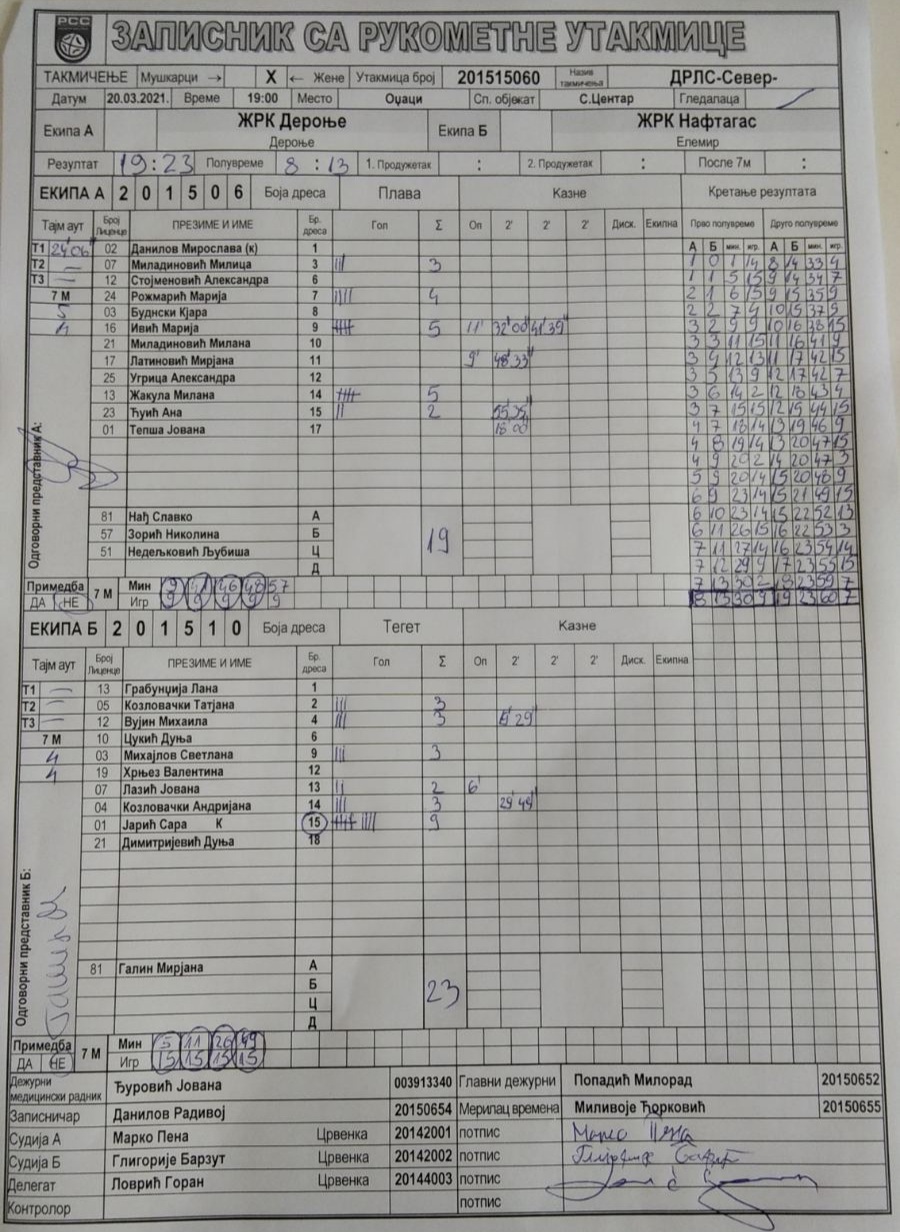 РСС
ЗАПИСНИК СА РУКОМЕТНЕ УТАКМИЦЕ
ТАКМИЧЕЊЕ Мушкарци → X ← Жене Утакмица број 201515060 Назив такмичења ДРЛС-Север-
Датум 20.03.2021. Време 19:00 Место Оџаци Сп. објекат С.Центар Гледалаца
Екипа А ЖРК Дероње Екипа Б ЖРК Нафтагас
Дероње Елемир
Резултат 19:23 Полувреме 8:13 1. Продужетак : 2. Продужетак : После 7м :
ЕКИПА А 2 0 1 5 0 6 Боја дреса Плава Казне Кретање резултата
Тајм аут Број Лиценце ПРЕЗИМЕ И ИМЕ Бр. дреса Гол Σ Оп 2' 2' 2' Диск. Екипна Прво полувреме Друго полувреме
А Б мин. игр. А Б мин. игр.
Т1 24'06" 02 Данилов Мирослава (к) 1
Т2 — 07 Миладиновић Милица 3 ||| 3
Т3 — 12 Стојменовић Александра 6
7 М 24 Рожмарић Марија 7 |||| 4
5 03 Буднски Кјара 8
4 16 Ивић Марија 9 5 11' 32'00" 41'39"
21 Миладиновић Милана 10
17 Латиновић Мирјана 11 9' 48'33"
25 Угрица Александра 12
13 Жакула Милана 14 5
23 Ћуић Ана 15 || 2 55'35"
01 Тепша Јована 17 18'00"
1 0 1 14 8 14 33 4
1 1 5 15 9 14 34 7
2 1 6 15 9 15 35 9
2 2 7 4 10 15 37 9
3 2 9 9 10 16 38 15
3 3 11 15 11 16 41 9
3 4 12 13 11 17 42 15
3 5 13 9 12 17 42 7
3 6 14 2 12 18 43 4
3 7 15 15 12 19 44 15
4 7 18 14 13 19 46 9
4 8 19 14 13 20 47 15
4 9 20 2 14 20 47 3
5 9 20 14 15 20 48 9
6 9 23 14 15 21 49 15
6 10 23 14 15 22 52 13
6 11 26 15 16 22 53 3
7 11 27 14 16 23 54 14
7 12 29 9 17 23 55 15
7 13 30 2 18 23 59 7
8 13 30 9 19 23 60 7
Одговорни представник А:
81 Нађ Славко А
57 Зорић Николина Б 19
51 Недељковић Љубиша Ц
Д
Примедба 7 М Мин 9 41 46 48 57
ДА НЕ Игр 9 9 9 9 9
ЕКИПА Б 2 0 1 5 1 0 Боја дреса Тегет Казне
Тајм аут Број Лиценце ПРЕЗИМЕ И ИМЕ Бр. дреса Гол Σ Оп 2' 2' 2' Диск. Екипна
Т1 — 13 Грабунџија Лана 1
Т2 — 05 Козловачки Татјана 2 ||| 3
Т3 — 12 Вујин Михаила 4 ||| 3
7 М 10 Цукић Дуња 6
4 03 Михајлов Светлана 9 ||| 3
4 19 Хрњез Валентина 12
07 Лазић Јована 13 || 2 6'
04 Козловачки Андријана 14 ||| 3 29'49"
01 Јарић Сара К 15 9
21 Димитријевић Дуња 18
Одговорни представник Б:
81 Галин Мирјана А
Б 23
Ц
Д
Примедба 7 М Мин 5 11 26 49
ДА НЕ Игр 15 15 15 15
Дежурни медицински радник Ђуровић Јована 003913340 Главни дежурни Попадић Милорад 20150652
Записничар Данилов Радивој 20150654 Мерилац времена Миливоје Ћорковић 20150655
Судија А Марко Пена Црвенка 20142001 потпис Марко Пена
Судија Б Глигорије Барзут Црвенка 20142002 потпис
Делегат Ловрић Горан Црвенка 20144003 потпис
Контролор потпис